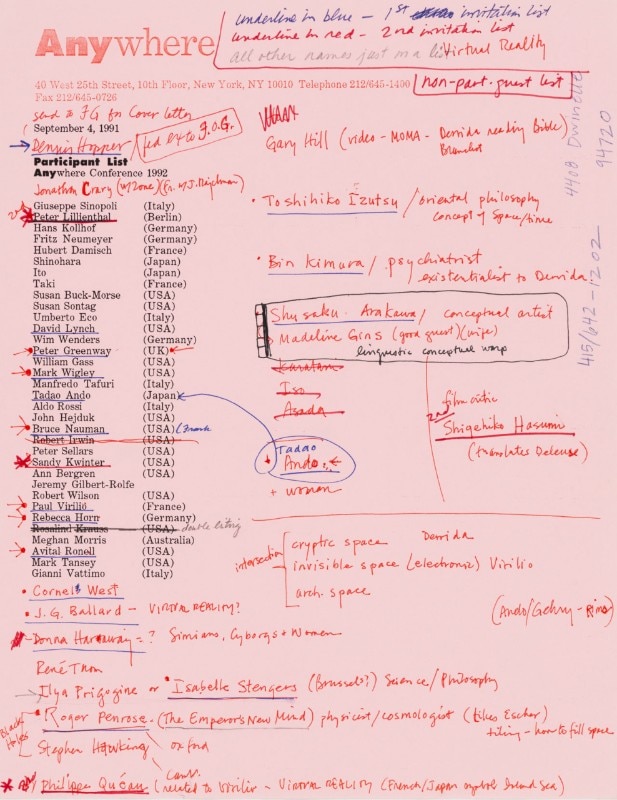 underline in blue – 1st invitation list
underline in red – 2nd invitation list
all other names just on a list
Virtual Reality
Anywhere
40 West 25th Street, 10th Floor, New York, NY 10010 Telephone 212/645-1400
Fax 212/645-0726
non-part. guest list
send to FG for Cover letter
September 4, 1991
Dennis Hopper
fed ex to F.O.G.
Participant List
Anywhere Conference 1992
Jonathan Crary (w/Zone)
Giuseppe Sinopoli (Italy)
Peter Lillienthal (Berlin)
Hans Kollhof (Germany)
Fritz Neumeyer (Germany)
Hubert Damisch (France)
Shinohara (Japan)
Ito (Japan)
Taki (France)
Susan Buck-Morse (USA)
Susan Sontag (USA)
Umberto Eco (Italy)
David Lynch (USA)
Wim Wenders (Germany)
Peter Greenway (UK)
William Gass (USA)
Mark Wigley (USA)
Manfredo Tafuri (Italy)
Tadao Ando (Japan)
Aldo Rossi (Italy)
John Hejduk (USA)
Bruce Nauman (USA) (Frank
Robert Irwin (USA)
Peter Sellars (USA)
Sandy Kwinter (USA)
Ann Bergren (USA)
Jeremy Gilbert-Rolfe
Robert Wilson (USA)
Paul Virilio (France)
Rebecca Horn (Germany)
Rosalind Krauss (USA) double listing
Meghan Morris (Australia)
Avital Ronell (USA)
Mark Tansey (USA)
Gianni Vattimo (Italy)
Gary Hill (video – MOMA – Derrida reading Bible)
4408 Dwinelle
94720
415/642-1202
Toshihiko Izutsu / oriental philosophy
concept of space/time
Bin Kimura / psychiatrist
existentialist to Derrida
Shusaku Arakawa / conceptual artist
Madeline Gins (good guest) (wife)
linguistic conceptual warp
Karatani
Iso
Asada
film critic
2nd
Shigehiko Hasumi
(translates Deleuse)
Tadao
Ando
+ woman
intersection
cryptic space Derrida
invisible space (electronic) Virilio
arch. space
(Ando/Gehry –
• Cornel West
• J.G. Ballard – VIRTUAL REALITY?
Donna Harraway = ? Simians, Cyborgs + Women
René Thom
Ilya Prigogine or • Isabelle Stengers (Brussels?) Science/Philosophy
Black Holes
Roger Penrose. (The Emperor's New Mind) physicist/cosmologist (likes Escher)
tiling – how to fill space
Stephen Hawking oxford
Camb.
Philippe Quéau (related to Virilio – VIRTUAL REALITY (French/Japan